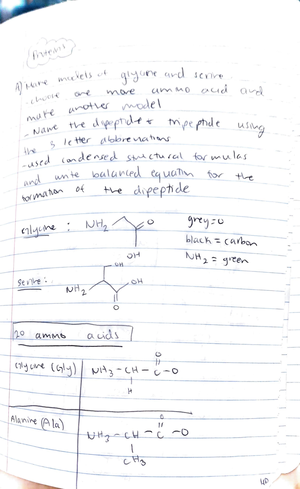 Proteins
A) Make models of glycine and serine
- choose one more amino acid and
make another model
- Name the dipeptide & tripeptide using
the 3 letter abbreviations
- used condensed structural formulas
and write balanced equation for the
formation of the dipeptide
Glycine : NH2 O
OH
grey = O
black = carbon
NH2 = green
Serine : OH
NH2 OH
O
20 ammo acids
Glycine (Gly) NH3 - CH - C - O
O
H
Alanine (Ala) NH3 - CH - C - O
O
CH3